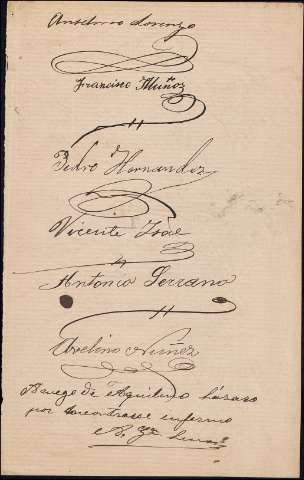 Anselmo Lorenzo
Francisco Muñoz
Pedro Hernandez
Vicente
Antonio Serrano
Avelino Nuñez
de Aquilino Lázaro
por encontrarse enfermo